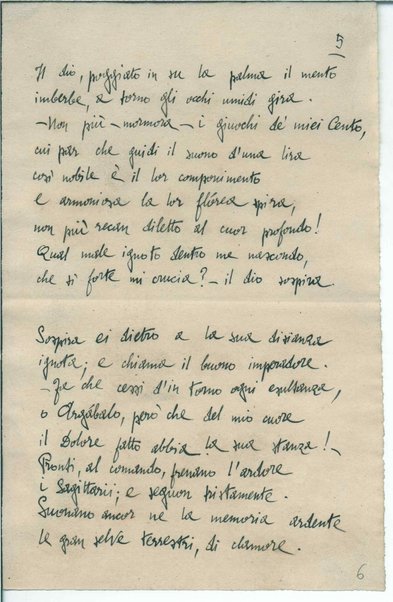 5
Il dio, poggiato in su la palma il mento
imberbe, a torno gli occhi umidi gira.
—Non più —mormora— i giuochi de' miei Cento,
cui par che guidi il suono d'una lira
così nobile è il lor componimento
e armoniosa la lor flòrea spira,
non più recan diletto al cuor profondo!
Qual male ignoto dentro me nascondo,
che sì forte mi crucia?— il dio sospira.
Sospira ei dietro a la sua disianza
ignota; e chiama il buono imperadore.
—Fa che cessi d'in torno ogni esultanza,
o Argàbalo, però che del mio cuore
il Dolore fatto abbia la sua stanza!—
Pronti, al comando, frenano l'ardore
i Sagittarii; e seguon tristamente.
Suonano ancor ne la memoria ardente
le gran selve terrestri, di clamore.
6